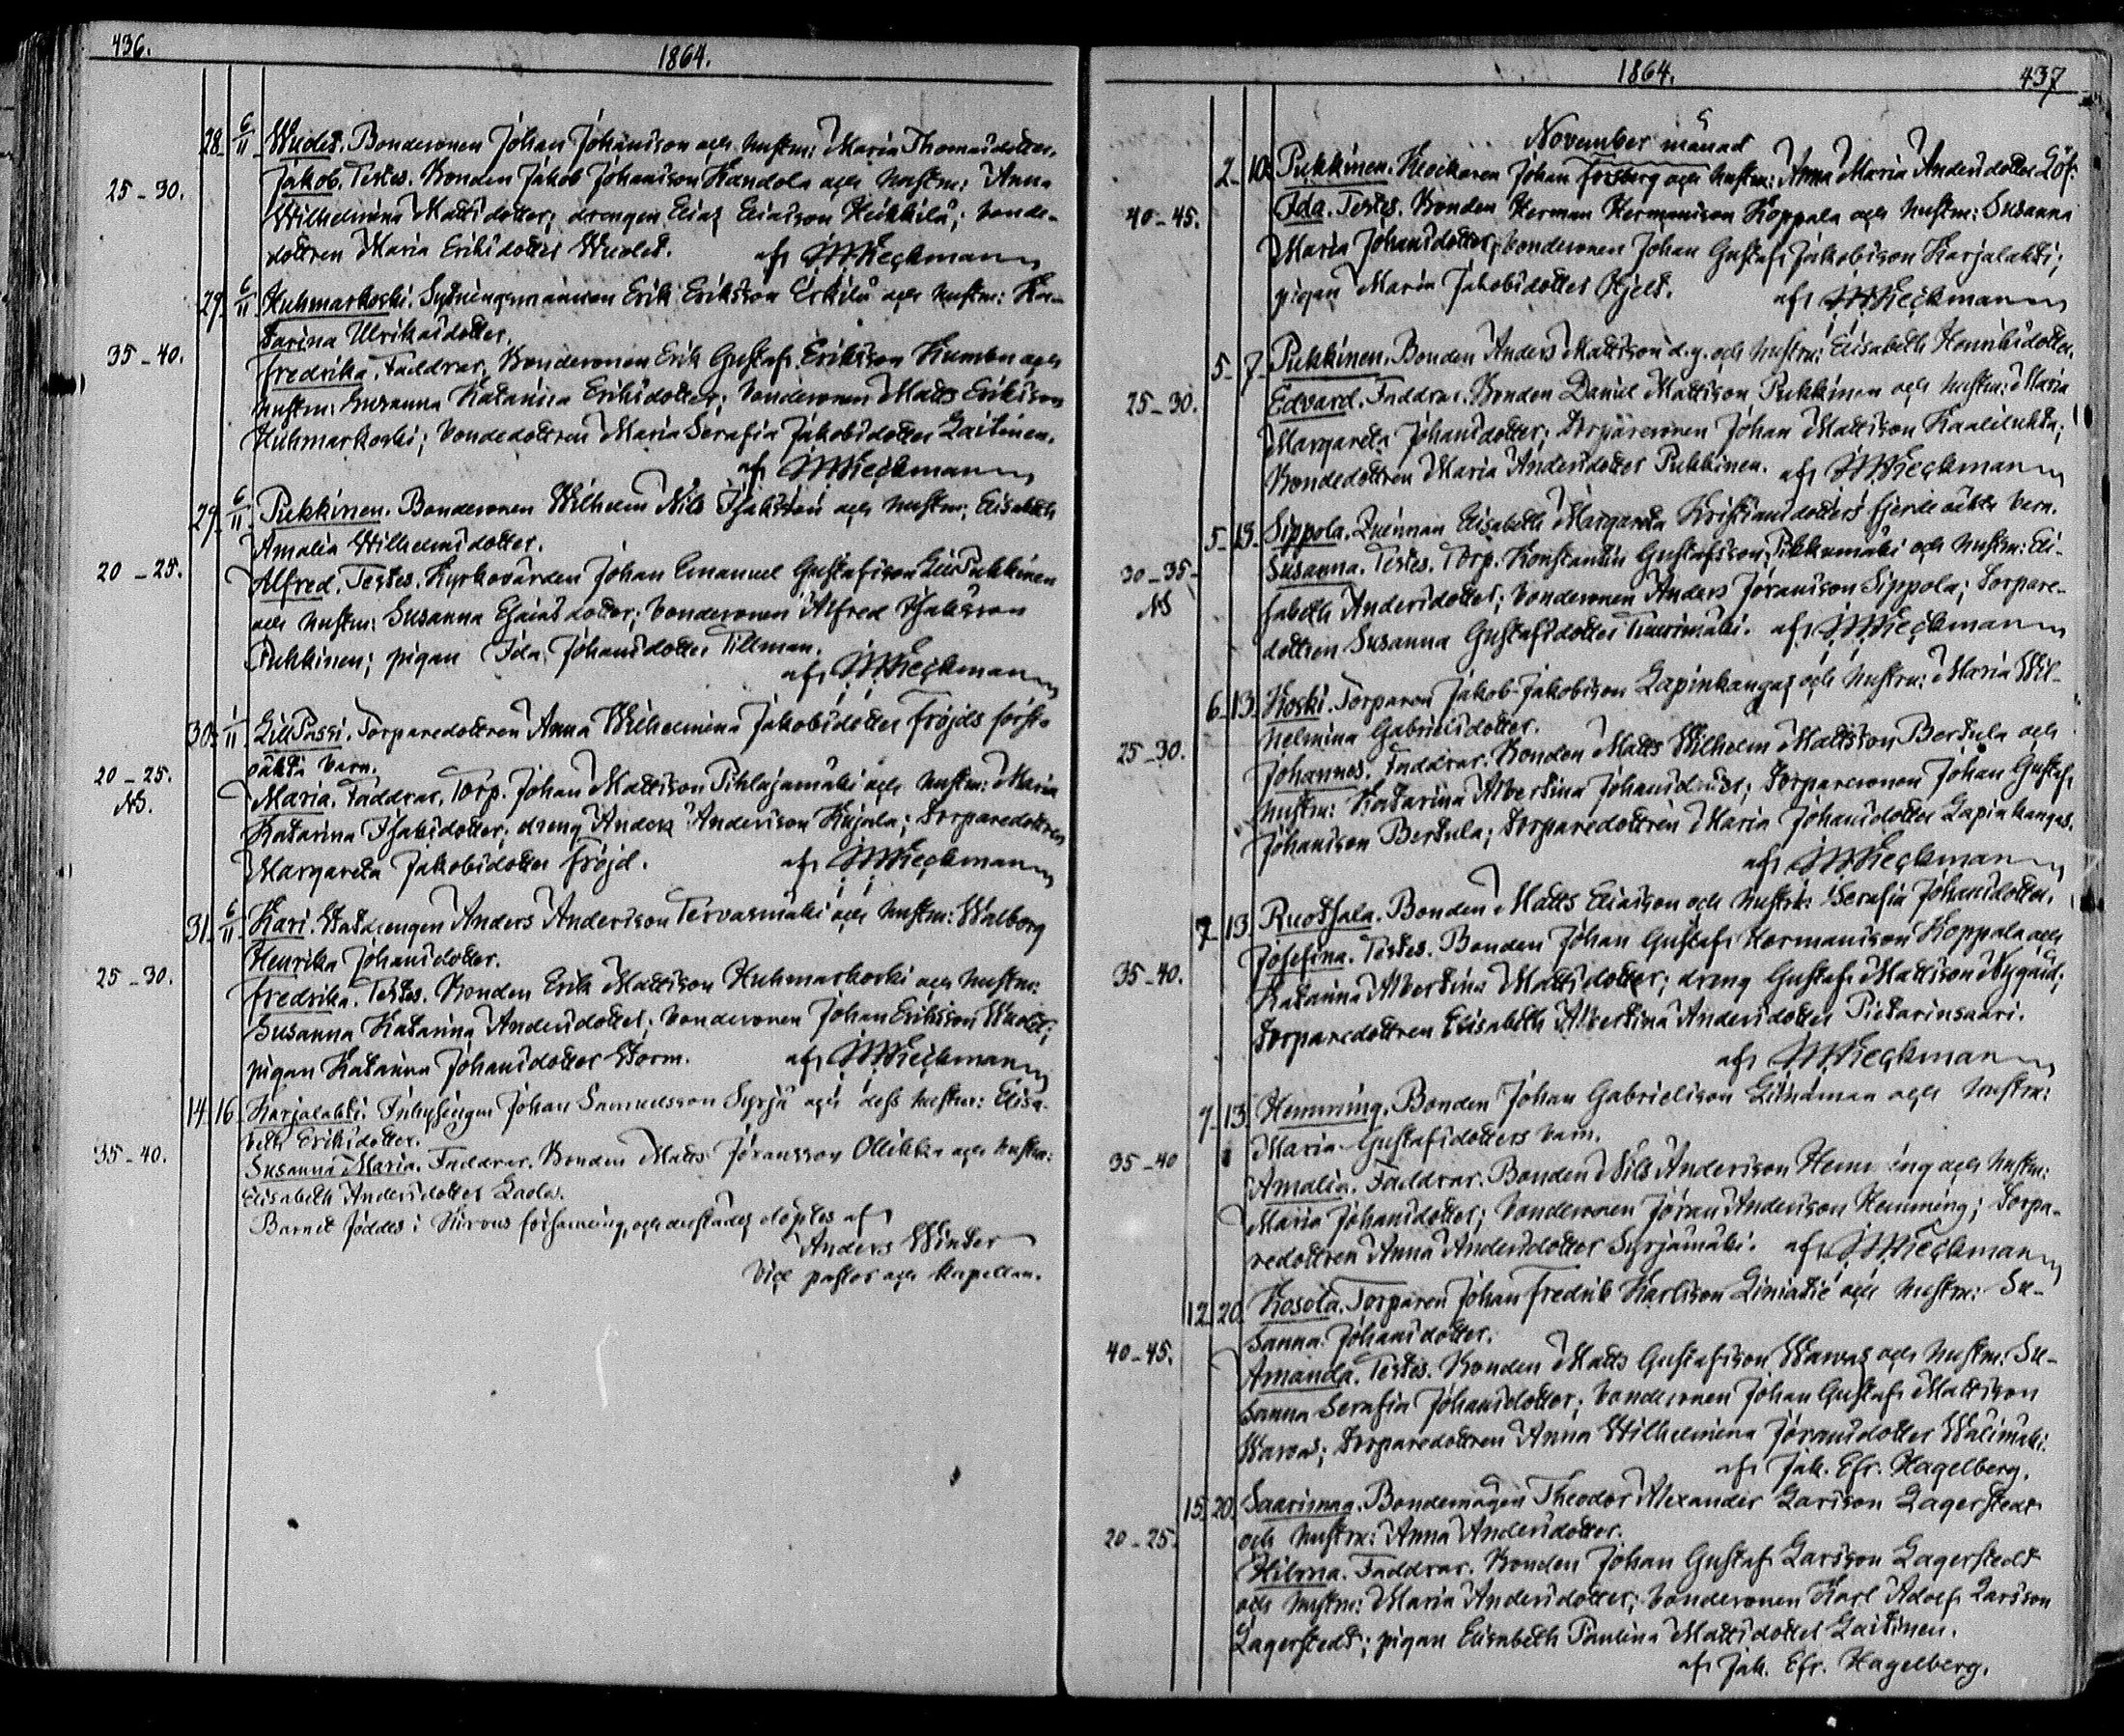 436.
1864.
28. 6/11 Wuolet. Bondesonen Johan Johansson och hustru: Maria Thomasdotter.
25-30. Jakob. Testes. Bonden Jakob Johansson Kandola och hustru: Anna
Wilhelmina Mattsdotter; drengen Elias Eliasson Heikkilä; bonde-
dottren Maria Eriksdotter Wuolet. af
29. 6/11 Huhmarkoski. Sytningsmannen Erik Eriksson Erkilä och hustru: Ka-
tarina Ulrikasdotter.
35-40. Fredrika. Faddrar. Bondesonen Erik Gustaf Eriksson och
hustru: Susanna Katarina Eriksdotter; bondesonen Matts Eriksson
Huhmarkoski; bondedottren Maria Serafia Jakobsdotter Laitinen.
af
29. 6/11 Pukkinen. Bondesonen Wilhelm Nils Isaksson och hustru: Elisabeth
Amalia Wilhelmsdotter.
20-25. Alfred. Testes. Kyrkovärden Johan Emanuel Gustafsson Pukkinen
och hustru: Susanna Esaiasdotter; bondesonen Alfred Isaksson
Pukkinen; pigan Ida Johansdotter Tillman.
af
30. 1/11 LillPassi. Torparedottren Anna Wilhelmina Jakobsdotter Fröjds första
oäkta barn.
20-25. Maria. Faddrar. Torp. Johan Mattsson Pihlajamäki och hustru: Maria
NB. Katarina Isaksdotter; dreng Anders Andersson Kujala; torparedottren
Margareta Jakobsdotter Fröjd. af
31. 6/11 Kari. Anders Andersson Tervasmäki och hustru: Walborg
Henrika Johansdotter.
25-30. Fredrika. Testes. Bonden Erik Mattsson Huhmarkoski och hustru:
Susanna Katarina Andersdotter; bondesonen Johan Eriksson Wuolet;
pigan Katarina Johansdotter Storm. af
14. 16. Karjalahti. Inhysingen Johan Samuelsson Syrjä och dess hustru: Elisa-
beth Eriksdotter.
35-40. Susanna Maria. Faddrar. Bonden Matts Jöransson Ollikka och hustru:
Elisabeth Andersdotter Laola.
Barnet föddes i församling, och derstädes döptes af
Anders Winter
vice pastor och kapellan.
1864.
437
November månad
2. 10. Pukkinen. Klockaren Johan Forsberg och hustru: Anna Maria Andersdotter Löf.
40-45. Ida. Testes. Bonden Herman Hermansson Koppala och hustru: Susanna
Maria Johansdotter; bondesonen Johan Gustaf Jakobsson Karjalahti;
pigan Maria Jakobsdotter Hjelt. af
5. 7. Pukkinen. Bonden Anders Mattsson d.y. och hustru: Elisabeth Henriksdotter.
25-30. Edvard. Faddrar. Bonden Daniel Mattsson Pukkinen och hustru: Maria
Margareta Johansdotter; torparesonen Johan Mattsson Kaalilukta;
Bondedottren Maria Andersdotter Pukkinen. af
5. 13. Sippola. Qvinnan Elisabeth Margareta Kristiansdotters fjerde oäkta barn.
30-35. Susanna. Testes. Torp. Konstantin Gustafsson Pikkumäki och hustru: Eli-
NB sabeth Andersdotter; bondesonen Anders Jöransson Sippola; torpare-
dottren Susanna Gustafsdotter Tuurimäki. af
6. 13. Koski. Torparen Jakob Jakobsson Lapinkangas och hustru: Maria Wil-
helmina Gabrielsdotter.
25-30. Johannes. Faddrar. Bonden Matts Wilhelm Mattsson Bertula och
hustru: Katarina Albertina Johansdotter; torparesonen Johan Gustaf
Johansson Bertula; torparedottren Maria Johansdotter Lapinkangas.
af
7. 13. Ruotsala. Bonden Matts Eliasson och hustru: Serafia Johansdotter.
35-40. Josefina. Testes. Bonden Johan Gustaf Hermansson Koppala och
Katarina Albertina Mattsdotter; dreng Gustaf Mattsson Nygård;
torparedottren Elisabeth Albertina Andersdotter Pietarinsaari.
af
7. 13. Hemming. Bonden Johan Gabrielsson och hustru:
Maria Gustafsdotters barn.
35-40 Amalia. Faddrar. Bonden Nils Andersson Hemming och hustru:
Maria Johansdotter; bondesonen Jöran Andersson Hemming; torpa-
redottren Anna Andersdotter Syrjämäki. af
12. 20. Kosola. Torparen Johan Fredrik Karlsson och hustru: Su-
sanna Johansdotter.
40-45. Amanda. Testes. Bonden Matts Gustafsson Warvas och hustru: Su-
sanna Serafia Johansdotter; bondesonen Johan Gustaf Mattsson
Warvas; torparedottren Anna Wilhelmina Jöransdotter Wälimäki.
af Jak. Efr. Hagelberg.
15. 20. Saarimaa. Bondemågen Theodor Alexander Larsson Lagerstedt
20-25. och hustru: Anna Andersdotter.
Hilma. Faddrar. Bonden Johan Gustaf Larsson Lagerstedt
och hustru: Maria Andersdotter; bondesonen Karl Adolf Larsson
Lagerstedt; pigan Elisabeth Paulina Mattsdotter Laitinen.
af Jak. Efr. Hagelberg.